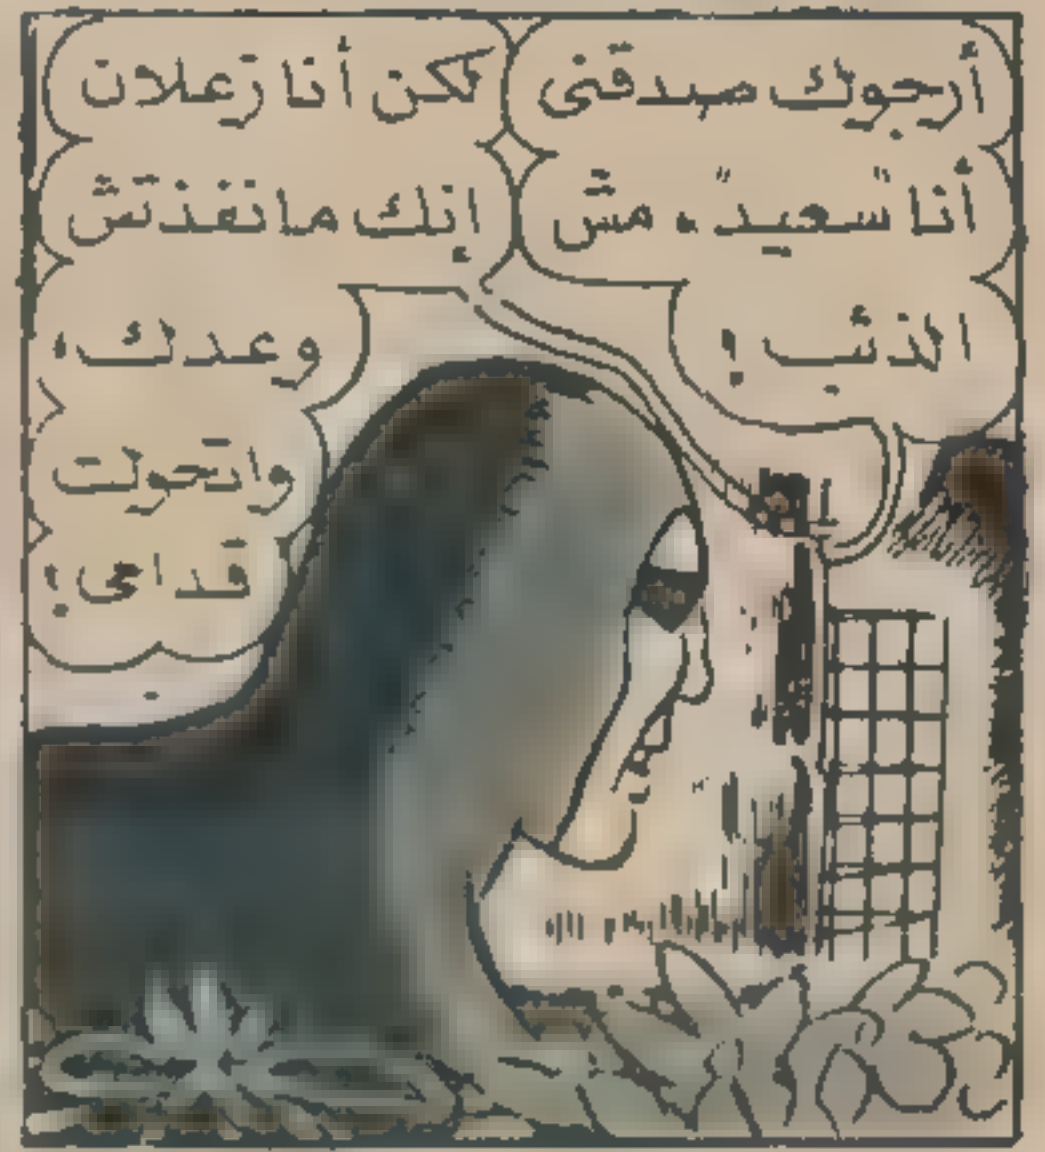 أرجوك صدقنى
أنا "سعيد"، مش
الذئب!
لكن أنا زعلان
إنك ما نفذتش
وعدك،
واتحولت
قدامى!